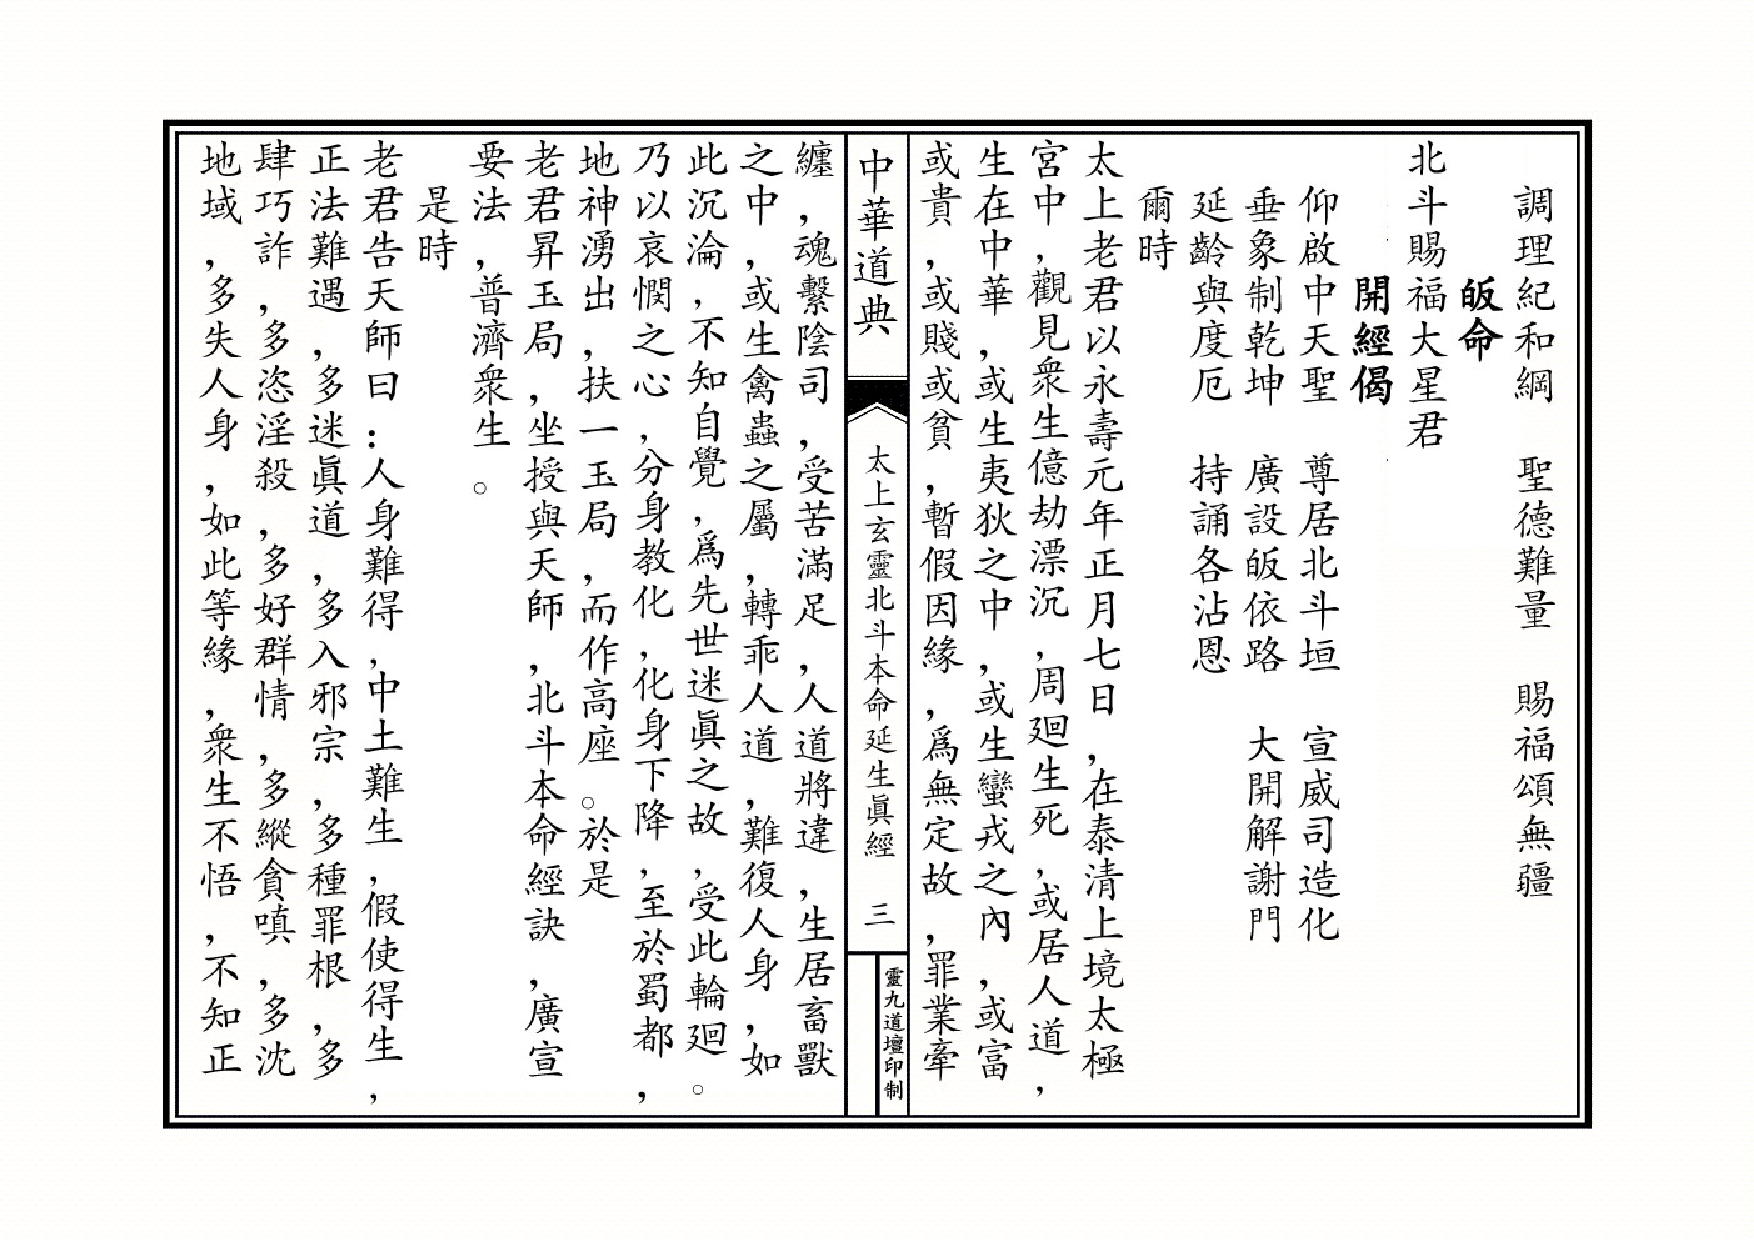 調理紀和綱　聖德難量　賜福頌無疆
皈命
北斗賜福大星君
開經偈
仰啟中天聖　尊居北斗垣　宣威司造化
垂象制乾坤　廣設皈依路　大開解謝門
延齡與度厄　持誦各沾恩
爾時
太上老君以永壽元年正月七日，在泰清上境太極
宮中，觀見衆生億劫漂沉，周廻生死，或居人道，
生在中華，或生夷狄之中，或生蠻戎之內，或富
或貴，或賤或貧，暫假因緣，爲無定故，罪業牽
中華道典
太上玄靈北斗本命延生眞經　三
靈九道壇印制
纏，魂繫陰司，受苦滿足，人道將違，生居畜獸
之中，或生禽蟲之屬，轉乖人道，難復人身，如
此沉淪，不知自覺，爲先世迷眞之故，受此輪廻。
乃以哀憫之心，分身教化，化身下降，至於蜀都，
地神湧出，扶一玉局，而作高座。於是
老君昇玉局，坐授與天師，北斗本命經訣，廣宣
要法，普濟衆生。
是時
老君告天師曰：人身難得，中土難生，假使得生，
正法難遇，多迷眞道，多入邪宗，多種罪根，多
肆巧詐，多恣淫殺，多好群情，多縱貪嗔，多沈
地域，多失人身，如此等緣，衆生不悟，不知正